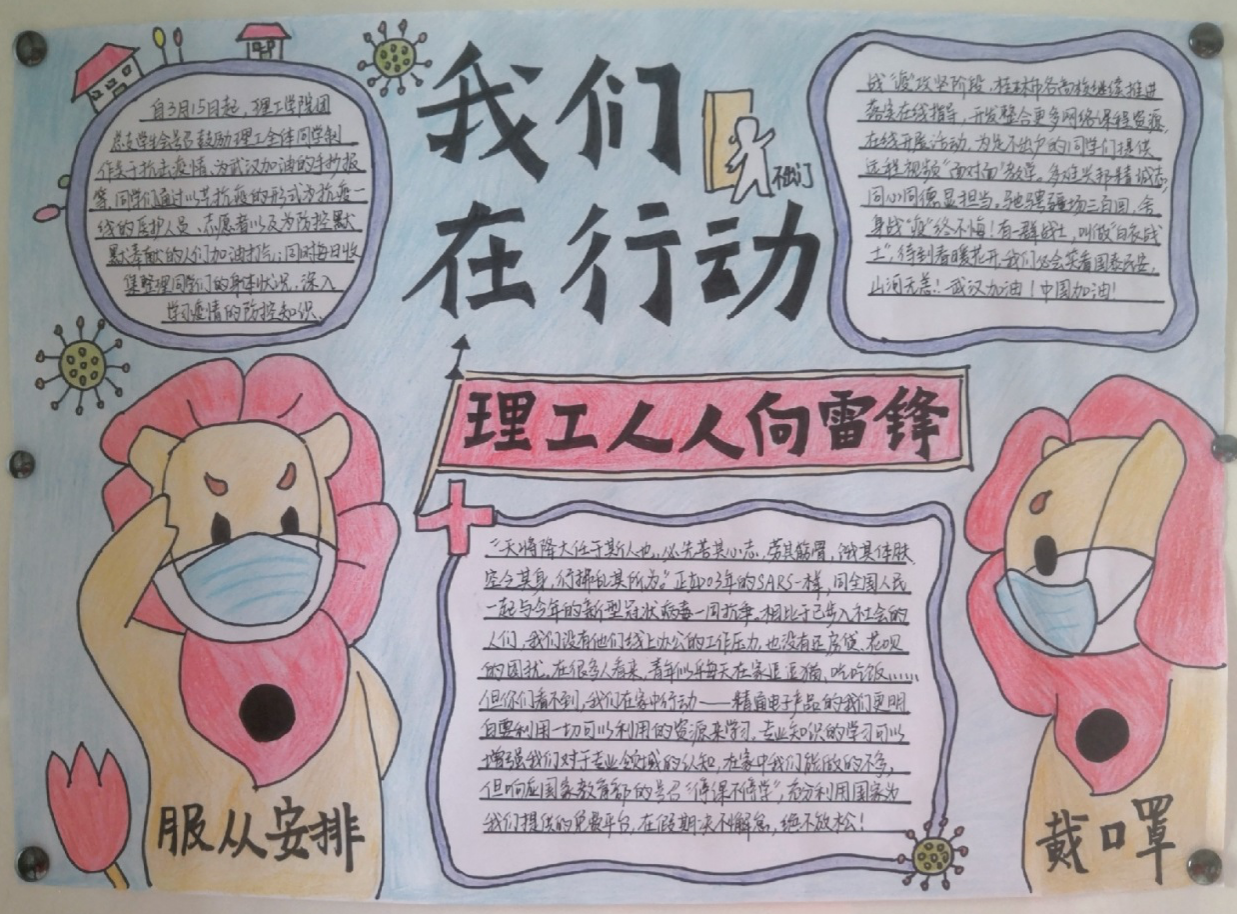 我们
在行动
不出门
自3月15日起，理工学院团
总支学生会号召鼓励理工全体同学制
作关于抗击疫情、为武汉加油的手抄报
等，同学们通过以某抗疫的形式为抗疫一
线的医护人员、志愿者以及为防控默
默奉献的人们加油打气；同时每日收
集整理同学们的身体状况，深入
学习疫情的防控知识、
战“疫”攻坚阶段，桂林市各高校继续推进
落实在线指导，开发整合更多网络课程资源，
在线开展活动，为足不出户的同学们提供
远程视频“面对面”教学。多难兴邦精诚志，
同心同德显担当，驰骋疆场三百回，舍
身战“疫”终不悔！有一群战士，叫做“白衣战
士”，待到春暖花开，我们必会笑看国泰民安，
山河无恙！武汉加油！中国加油！
理工人人向雷锋
“天将降大任于斯人也，必先苦其心志，劳其筋骨，饿其体肤，
空乏其身，行拂乱其所为。”正如03年的SARS一样，同全国人民
一起与今年的新型冠状病毒一同抗争。相比于已步入社会的
人们，我们没有他们线上办公的工作压力，也没有还房贷、花呗
的困扰。在很多人看来，青年似乎每天在家逗逗猫，吃吃饭……
但你们看不到，我们在家中行动——精通电子产品的我们更明
白要利用一切可以利用的资源来学习。专业知识的学习可以
增强我们对于专业领域的认知，在家中我们能做的不多，
但响应国家教育部的号召“停课不停学”，充分利用国家为
我们提供的免费平台，在假期决不懈怠，绝不放松！
服从安排
戴口罩